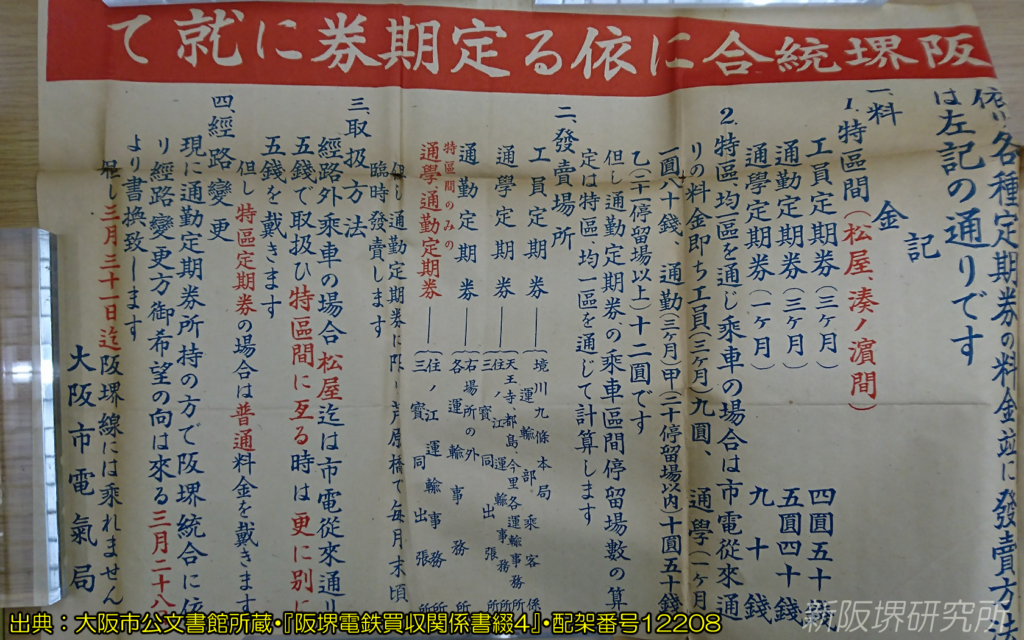 阪堺統合に依る定期券に就て
依り各種定期券の料金並に發賣方法
は左記の通りです
記
一、料金
1.特區間(松屋、湊ノ濱間)
工員定期券(三ヶ月) 四圓五十錢
通勤定期券(三ヶ月) 五圓四十錢
通學定期券(一ヶ月) 九十錢
2.特區、均一區を通じ乘車の場合は市電從來通
りの料金即ち工員(三ヶ月)九圓、通學(一ヶ月)
一圓八十錢、通勤(三ヶ月)甲(二十停留場以内)十圓五十錢
乙(二一停留場以上)十二圓です
但し通勤定期券の乘車區間停留場數の算
定は特區、均一區を通じて計算します
二、發賣場所
工員定期券――境川九條本局
運輸部乘客係
通學定期券――天王寺、都島、今里各運輸事務所
住ノ江運輸事務所
三寳同出張所
通勤定期券――右場所の外
各運輸事務所
特區間のみの
通學通勤定期券――住ノ江運輸事務所
三寳同出張所
但し通勤定期券に限り芦原橋で毎月末頃
臨時發賣します
三、取扱方法
經路外乘車の場合松屋迄は市電從來通り
五錢で取扱ひ特區間に亙る時は更に別に
五錢を戴きます
但し特區定期券の場合は普通料金を戴きます
四、經路變更
現に通勤定期券所持の方で阪堺統合に依
り經路變更方御希望の向は來る三月二十八
より書換致します
但し三月三十一日迄阪堺線には乘れません
大阪市電氣局
新阪堺研究所
出典：大阪市公文書館所蔵・『阪堺電鉄買収関係書綴4』・配架番号12208